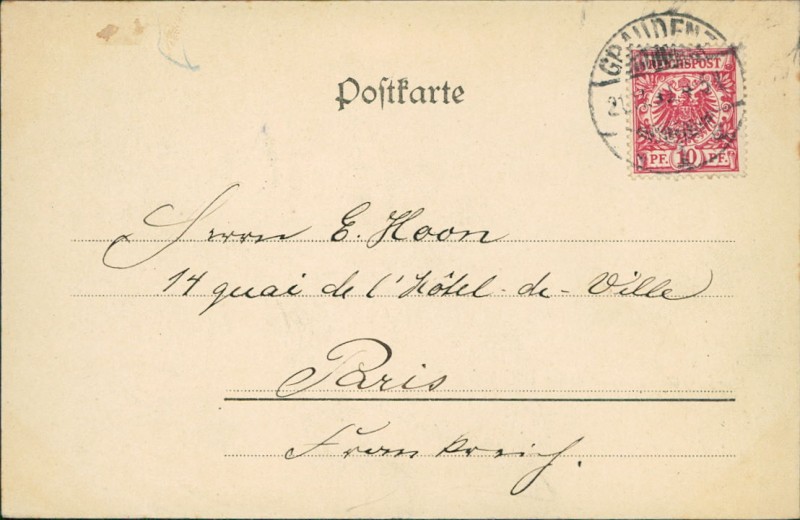 GRAUDENZ
REICHSPOST
PF. 10 PF.
Postkarte
Herrn E. Hoon
14 quai de l'Hôtel-de-Ville
Paris
Frankreich.